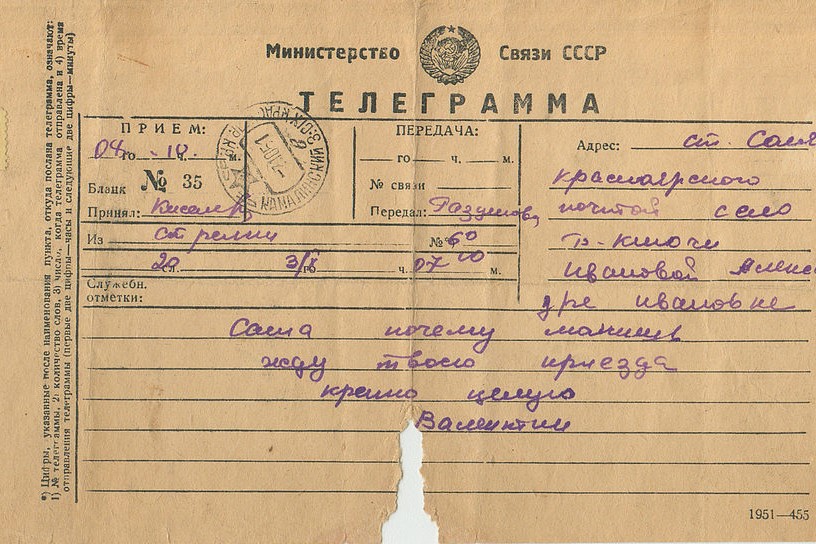 Министерство Связи СССР
ТЕЛЕГРАММА
ПРИЕМ:
04 го 10 ч. м.
Бланк № 35
Принял: Киселев
ПЕРЕДАЧА:
го ч. м.
№ связи
Передал: Разумова
Адрес: ст.
красноярского
почтой село
Т-ключи
Ивановой Алекс
дре ивановне
Из стрелки № 60
20 л. 3/X го ч. 07 00 м.
Служебн.
отметки:
Саша почему молчишь
жду твоего приезда
крепко целую
Валентин
1951—455
*) Цифры, указанные после наименования пункта, откуда послана телеграмма, означают:
1) № телеграммы, 2) количество слов, 3) число, когда телеграмма отправлена и 4) время
отправления телеграммы (первые две цифры—часы и следующие две цифры—минуты)